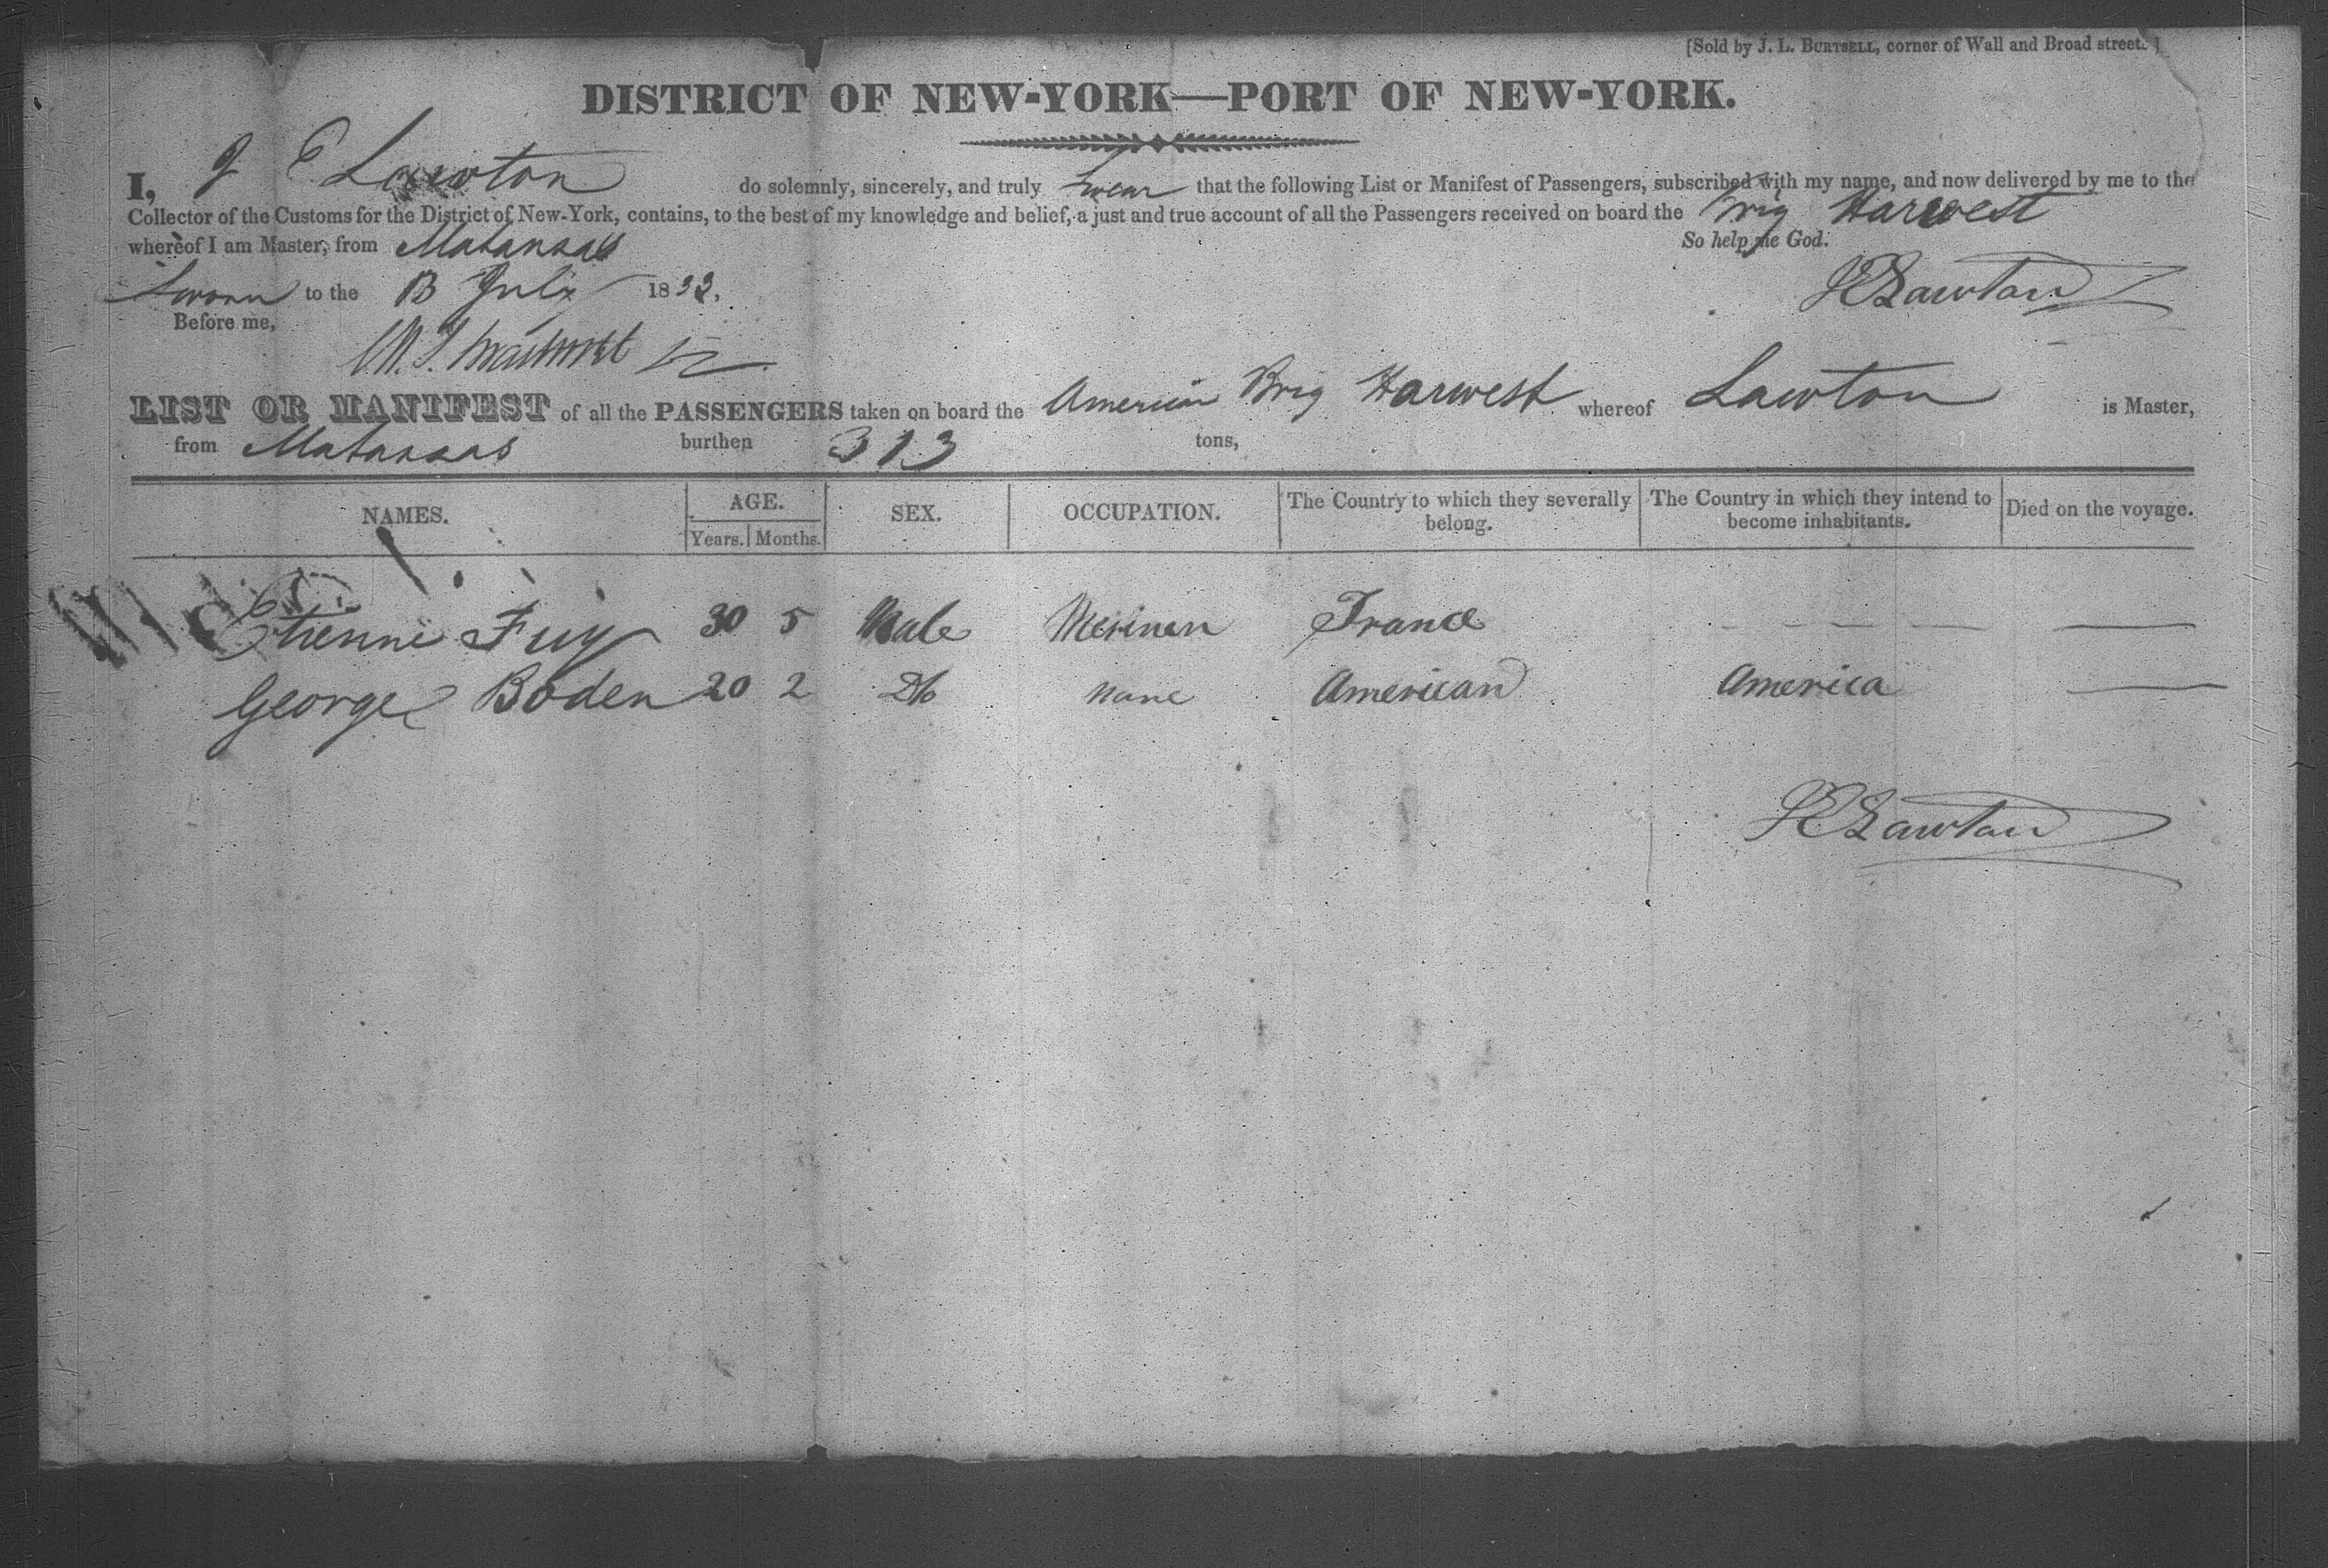 [Sold by J. L. BURTSELL, corner of Wall and Broad street.]
DISTRICT OF NEW-YORK—PORT OF NEW-YORK.
I, J E Lawton do solemnly, sincerely, and truly Swear that the following List or Manifest of Passengers, subscribed with my name, and now delivered by me to the
Collector of the Customs for the District of New-York, contains, to the best of my knowledge and belief, a just and true account of all the Passengers received on board the Brig Harwest
whereof I am Master, from Matansas So help me God.
Sworn to the 13 July 1833. J E Lawton
Before me,
LIST OR MANIFEST of all the PASSENGERS taken on board the American Brig Harwest whereof Lawton is Master,
from Matansas burthen 313 tons,
NAMES. AGE. SEX. OCCUPATION. The Country to which they severally belong. The Country in which they intend to become inhabitants. Died on the voyage.
Years. Months.
Etienne Fuy 30 5 Male France — — — — —
George Boden 20 2 Do None American America —
J E Lawton